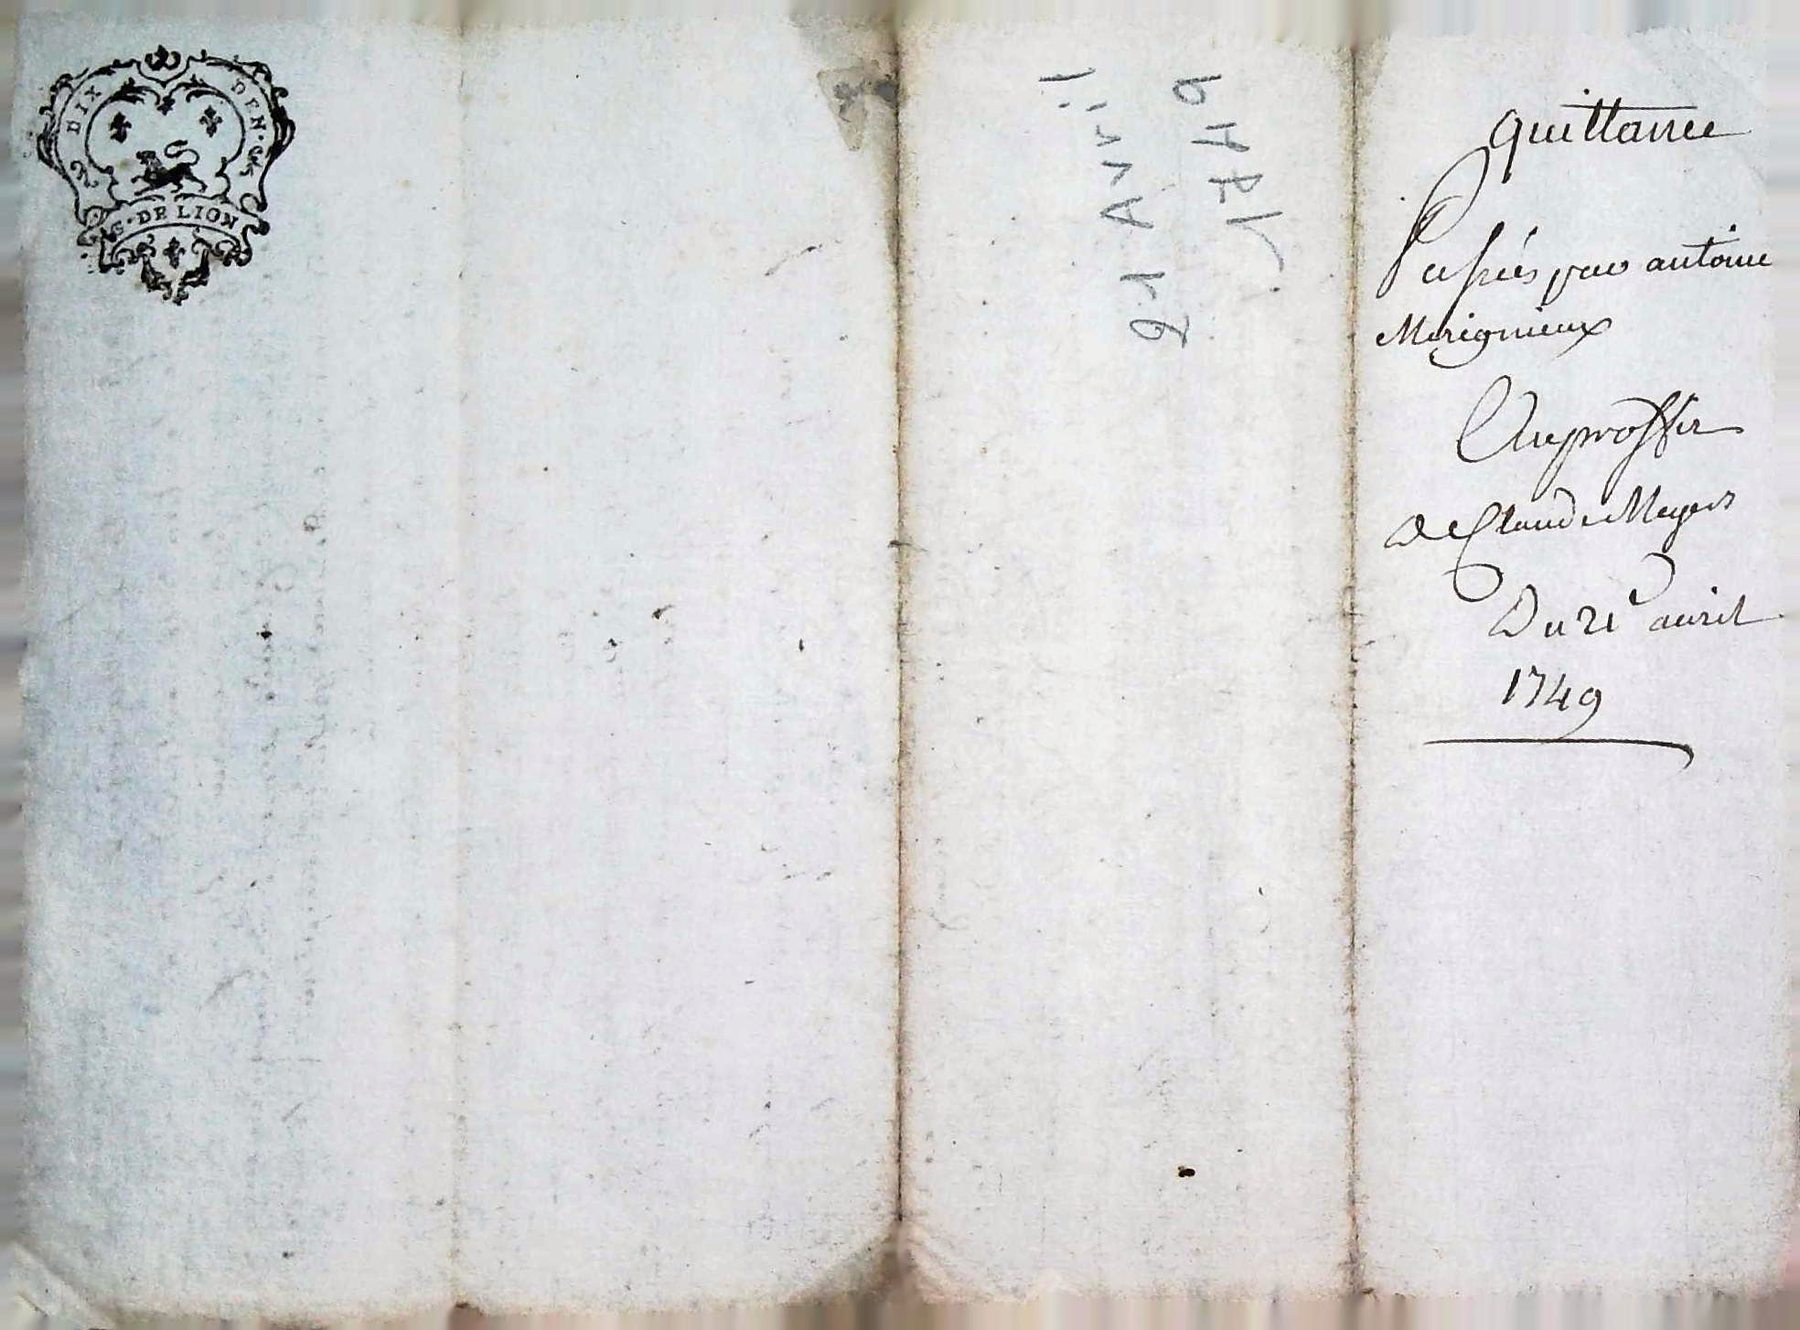 DIX DEN.
G. DE LION
21 Avril
1749
quittance
Passées par antoine
Merignieux
Au proffit
De Claude Meyer
Du 21e avril
1749